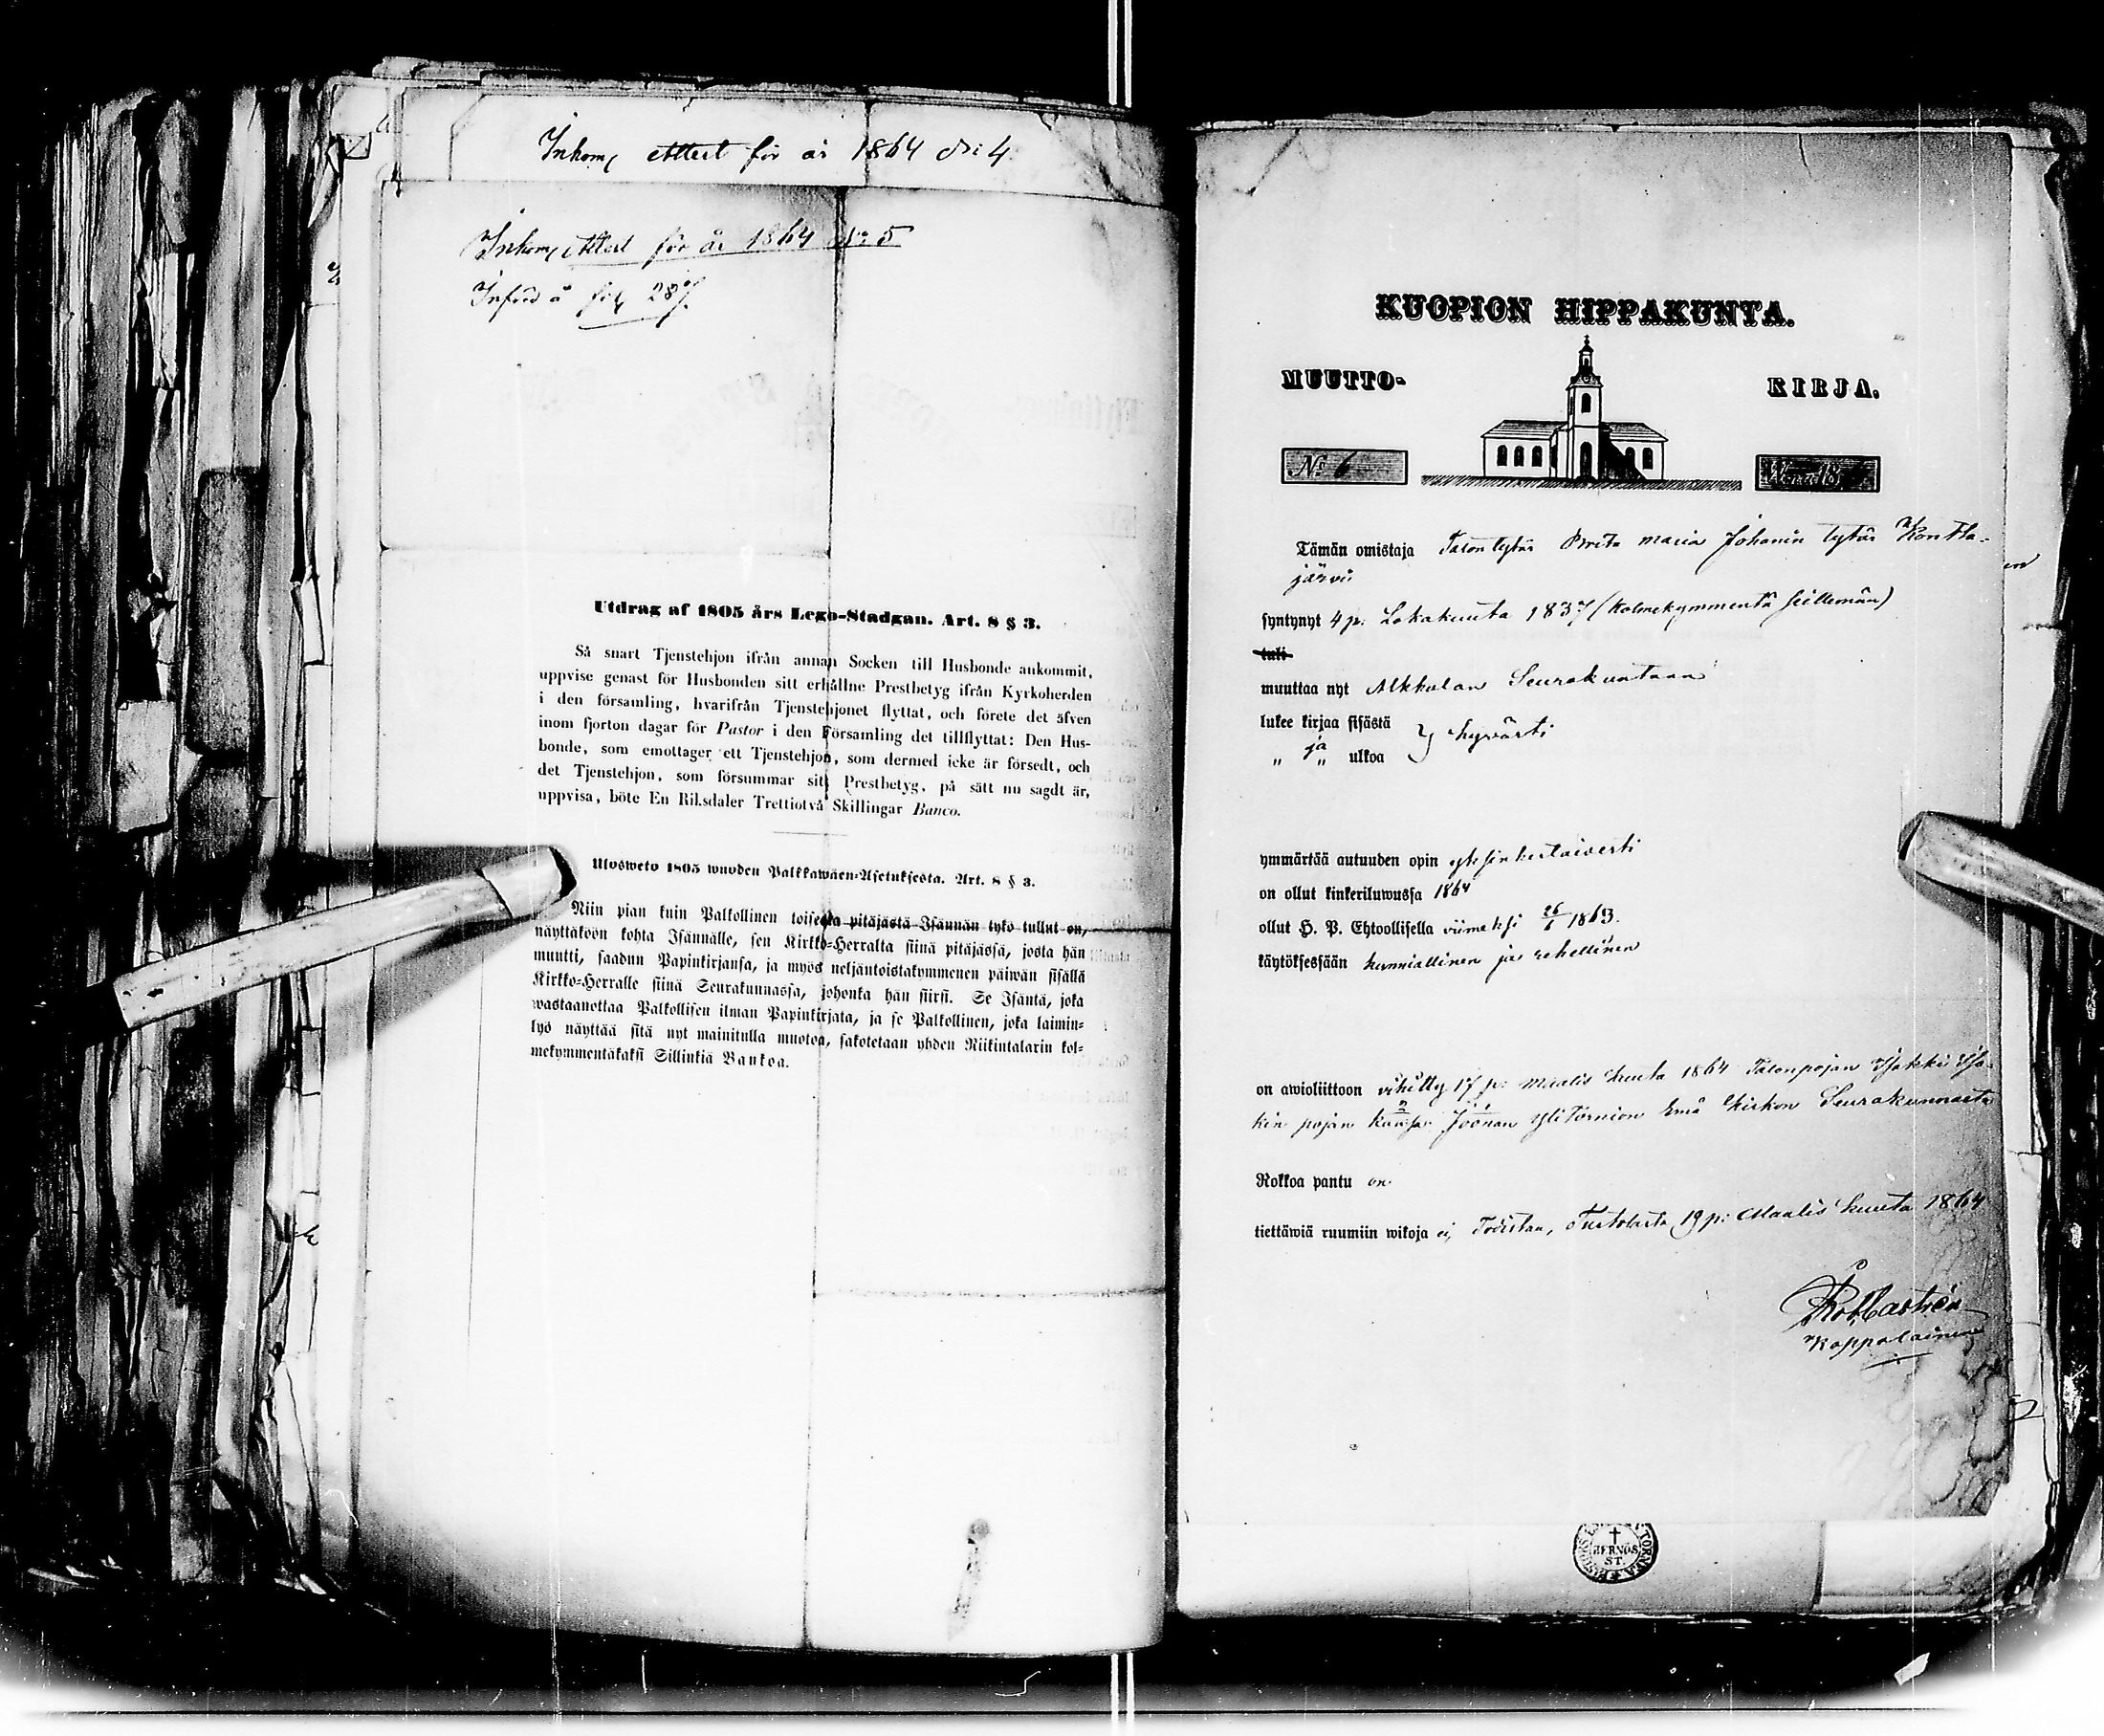 Inkom. Attest för år 1864 No: 4
Inkom. Attest för år 1864 No: 5
Införd å fol. 287.
Utdrag af 1805 års Lego-Stadgan. Art. 8 § 3.
Så snart Tjenstehjon ifrån annan Socken till Husbonde ankommit,
uppvise genast för Husbonden sitt erhållne Prestbetyg ifrån Kyrkoherden
i den församling, hvarifrån Tjenstehjonet flyttat, och förete det äfven
inom fjorton dagar för Pastor i den Församling det tillflyttat: Den Hus-
bonde, som emottager ett Tjenstehjon, som dermed icke är försedt, och
det Tjenstehjon, som försummar sitt Prestbetyg, på sätt nu sagdt är,
uppvisa, böte En Riksdaler Trettiotvå Skillingar Banco.
Ulosweto 1805 wuoden Palkkawäen-Asetuksesta. Art. 8 § 3.
Niin pian kuin Palkollinen toisesta pitäjästä Isännän tykö tullut on,
näyttäköön kohta Isännälle, sen Kirkko-Herralta siinä pitäjässä, josta hän
muutti, saadun Papinkirjansa, ja myös neljäntoistakymmenen päiwän sisällä
Kirkko-Herralle siinä Seurakunnassa, johonka hän siirsi. Se Isäntä, joka
wastaanottaa Palkollisen ilman Papinkirjata, ja se Palkollinen, joka laimin-
lyö näyttää sitä nyt mainitulla muotoa, sakotetaan yhden Riikintalarin kol-
mekymmentäkaksi Sillinkiä Bankoa.
KUOPION HIPPAKUNTA.
MUUTTO- KIRJA.
No 6 18
Tämän omistaja Talon tytär Brita Maria Johanin tytär Kontta-
järvi
syntynyt 4 p. Lokakuuta 1837 (Kolmekymmentä seittemän)
tuli
muuttaa nyt Alkkulan Seurakuntaan
lukee kirjaa sisästä } hyvästi
" ja " ulkoa
ymmärtää autuuden opin yksinkertaisesti
on ollut kinkeriluwussa 1864
ollut H. P. Ehtoollisella viimeksi 26/6 1863.
käytöksessään kunniallinen ja rehellinen
on awioliittoon vihitty 17 p: Maalis kuuta 1864 Talonpojan Isakki Isa-
kin pojan kansa Ylitornion Emä Kirkon Seurakunnasta
Rokkoa pantu on
tiettäwiä ruumiin wikoja ei, Todistaa, Turtolasta 19 p: Maalis kuuta 1864
Castrén
Kappalainen
HERNÖS.
ST.